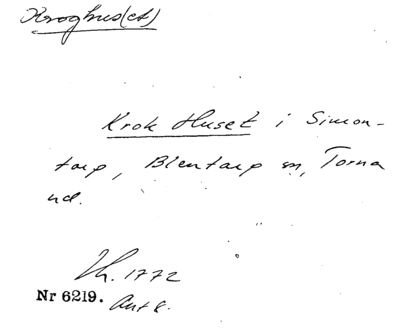 Kroghus(et)
Krok Huset i Simon-
tarp, Blentarp sn, Torna
hd.
Vh. 1772
Nr 6219. Ant 8.